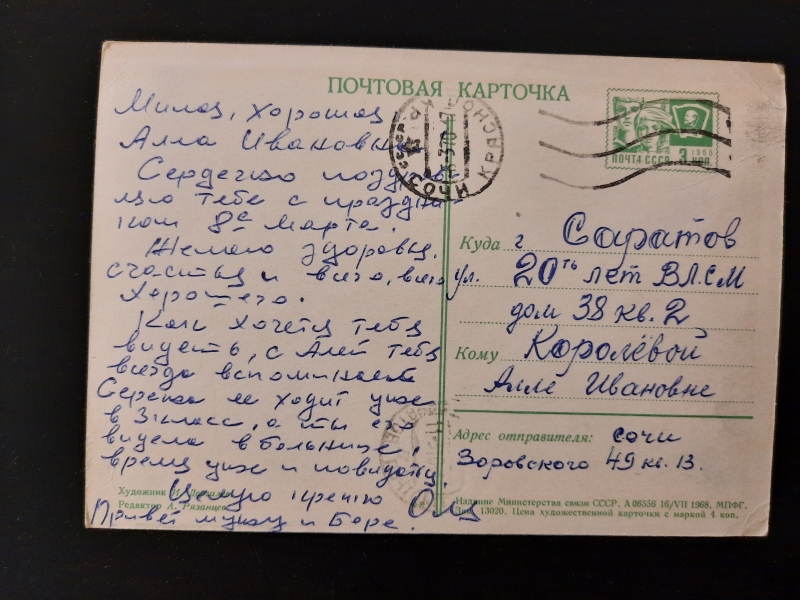 ПОЧТОВАЯ КАРТОЧКА
Милая, хорошая
Алла Ивановна
Сердечно поздрав
ляю тебя с праздни
ком 8е Марта.
Желаю здоровья,
счастья и всего, всего
хорошего.
Как хочется тебя
видеть, с Алей тебя
всегда вспоминаем
Сережа ее ходит уже
в 3 класс, а ты его
видела в больнице,
время уже и повидаться
Целую крепко
Оля
Привет мужу и Боре.
ПОЧТА СССР
1966
3 коп
Куда г Саратов
ул. 20ть лет ВЛСМ
дом 38 кв. 2
Кому Королёвой
Алле Ивановне
Адрес отправителя: Сочи
Воровского 49 кв. 13.
Художник И.
Редактор А. Рязанцев
Издание Министерства связи СССР. А 06556 16/VII 1968. МПФГ.
Зак. 13020. Цена художественной карточки с маркой 4 коп.